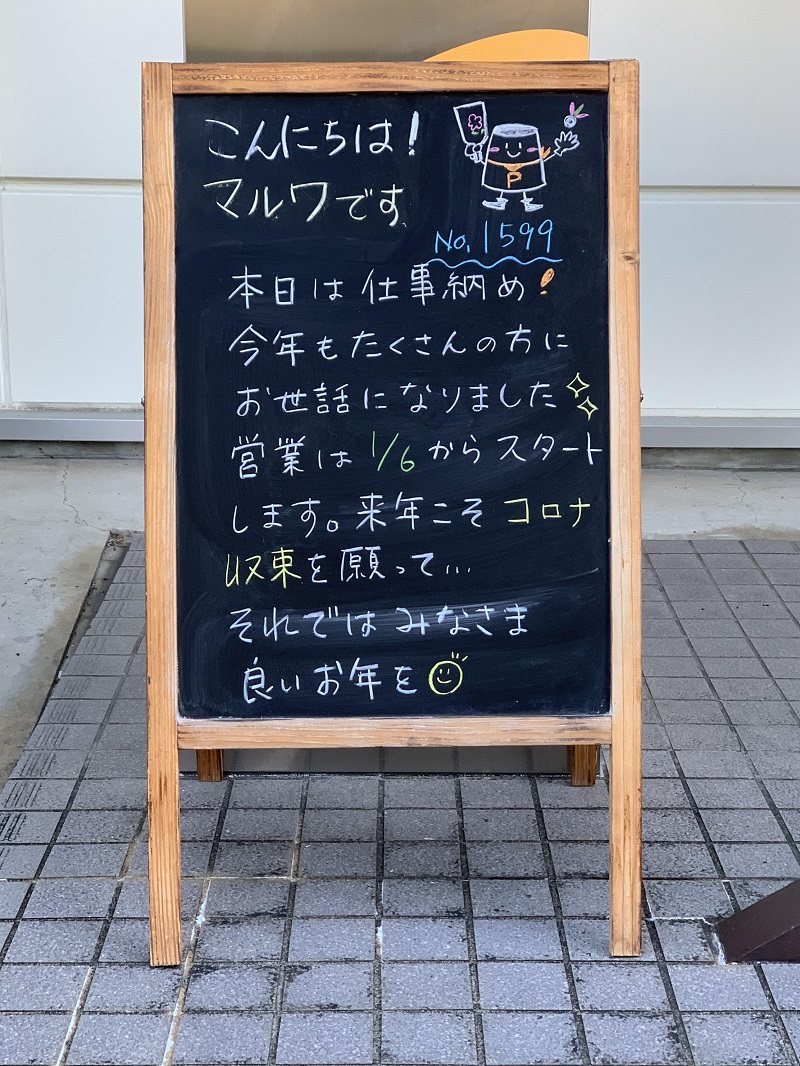 こんにちは!
マルワです
P
No.1599
本日は仕事納め!
今年もたくさんの方に
お世話になりました
営業は1/6からスタート
します。来年こそコロナ
収束を願って…
それではみなさま
良いお年を